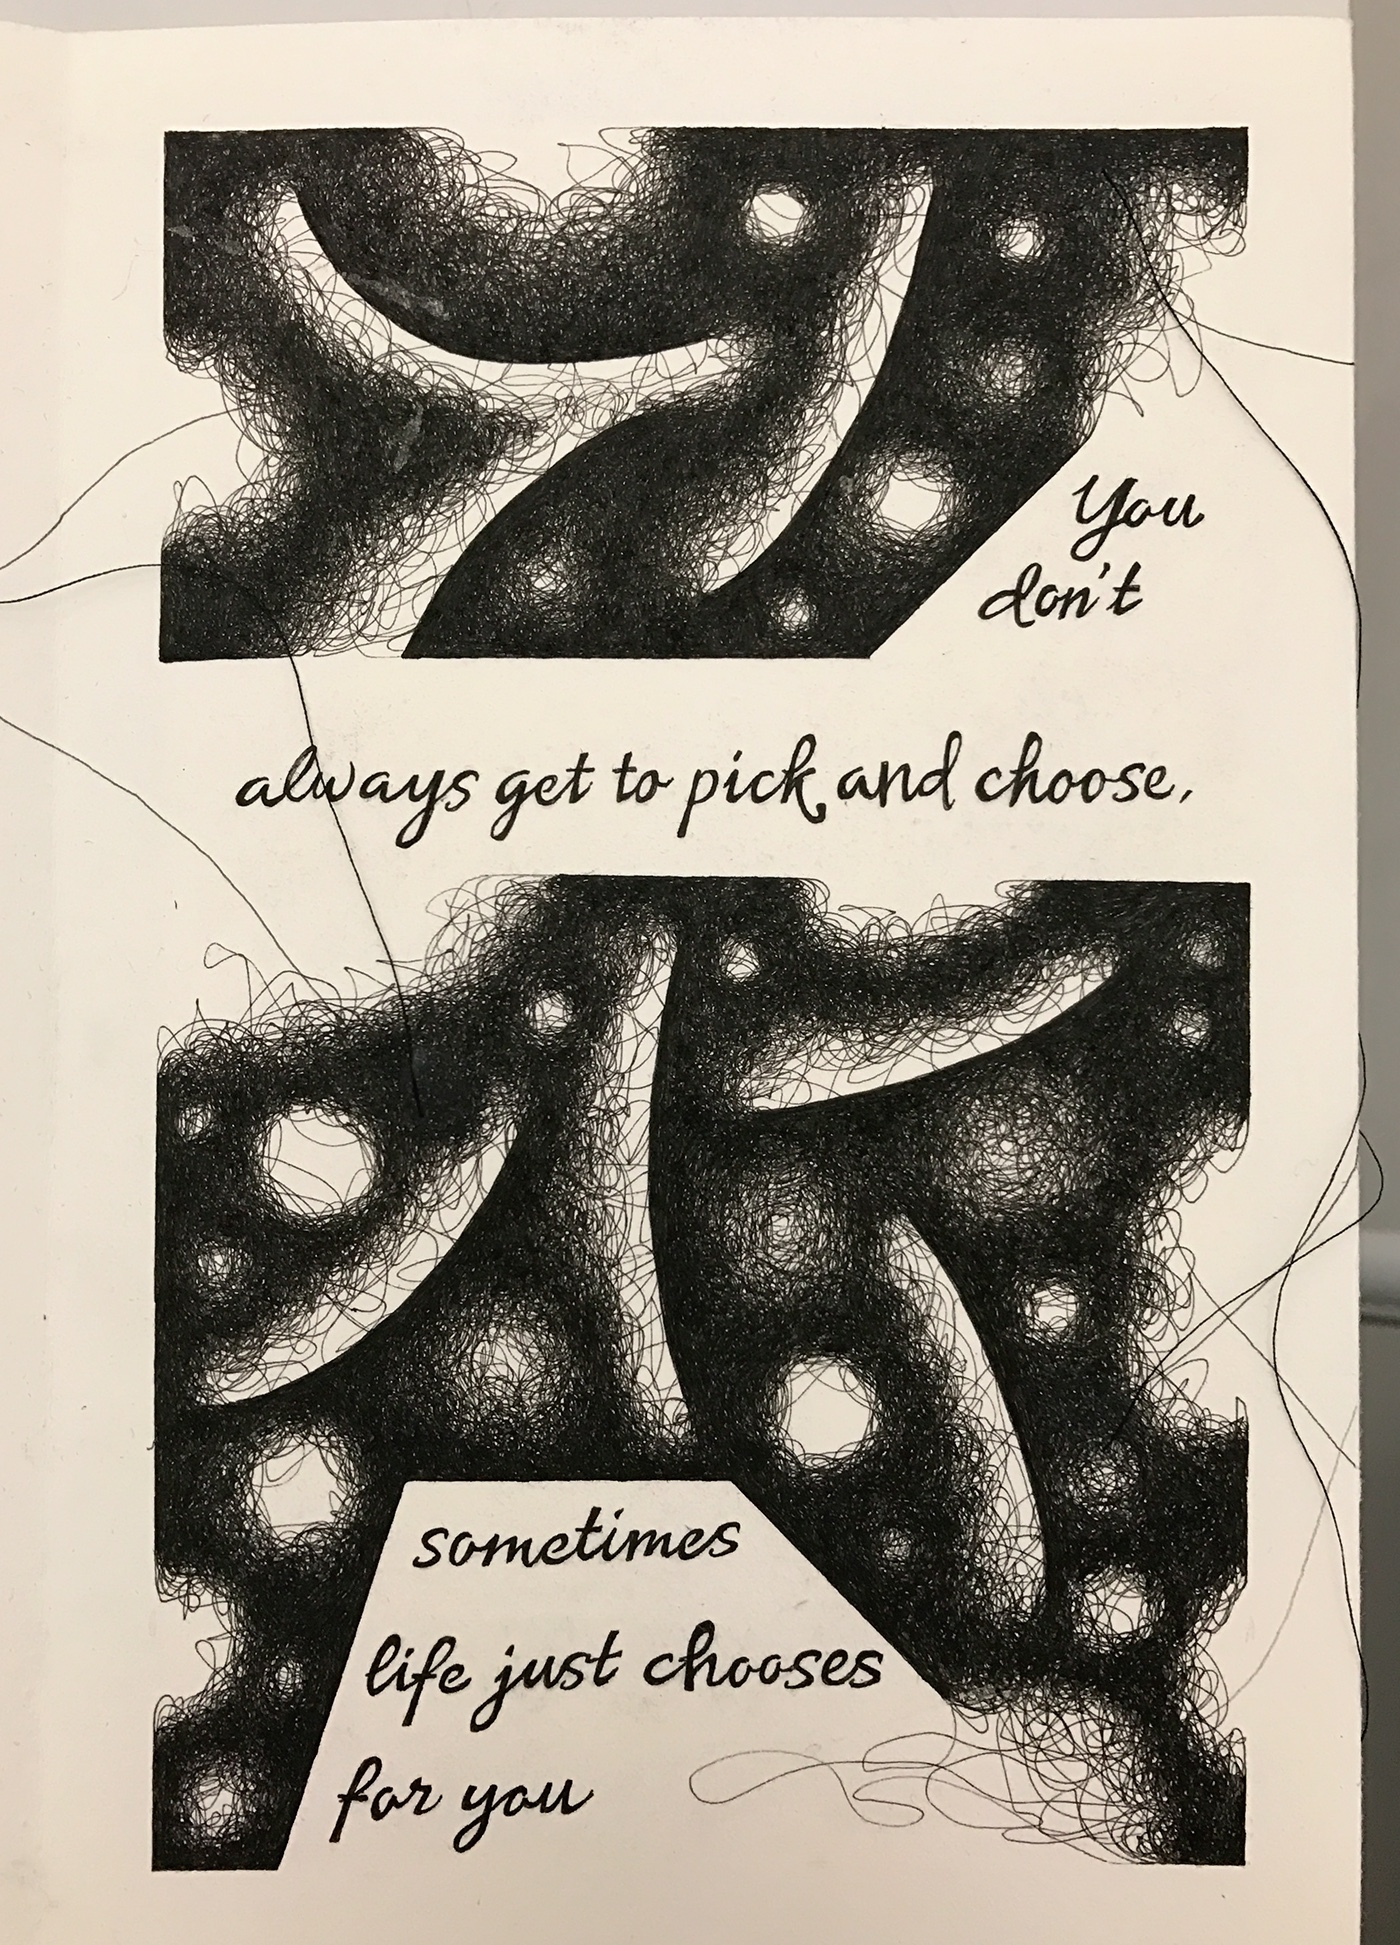 You
don't
always get to pick and choose,
sometimes
life just chooses
for you